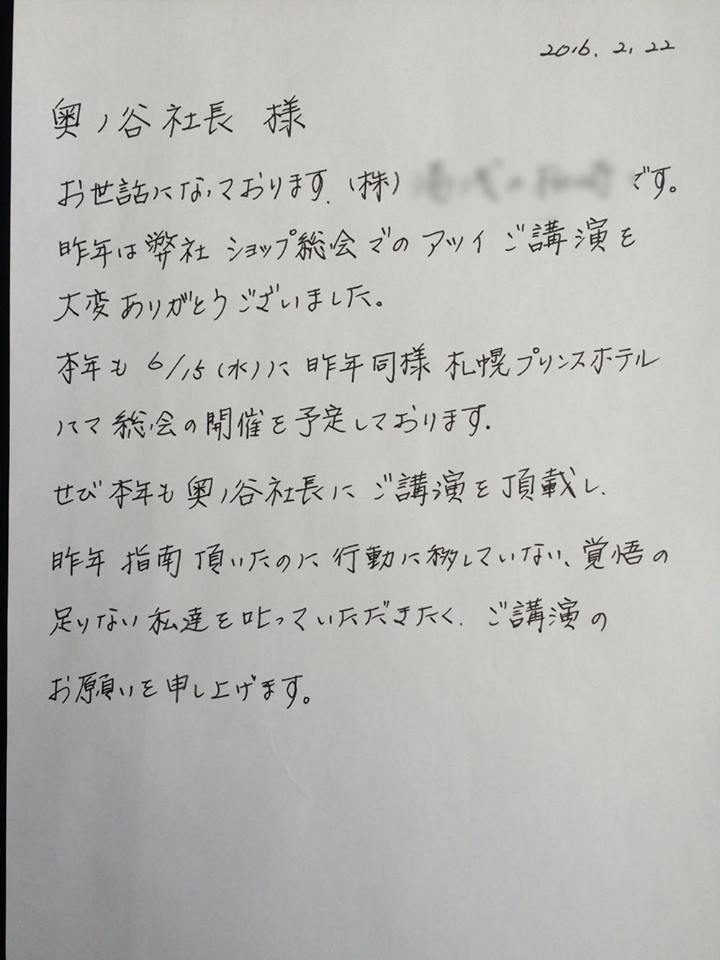 2016.2.22
奥ノ谷社長 様
お世話になっております.(株) です。
昨年は弊社 ショップ総会でのアツイ ご講演を
大変ありがとうございました。
本年も 6/15(水)に 昨年同様 札幌プリンスホテル
にて総会の開催を予定しております.
せび本年も奥ノ谷社長に ご講演を頂載し.
昨年 指南頂いたのに行動に移していない、覚悟の
足りない私達を叱っていただきたく. ご講演の
お願いを申し上げます。